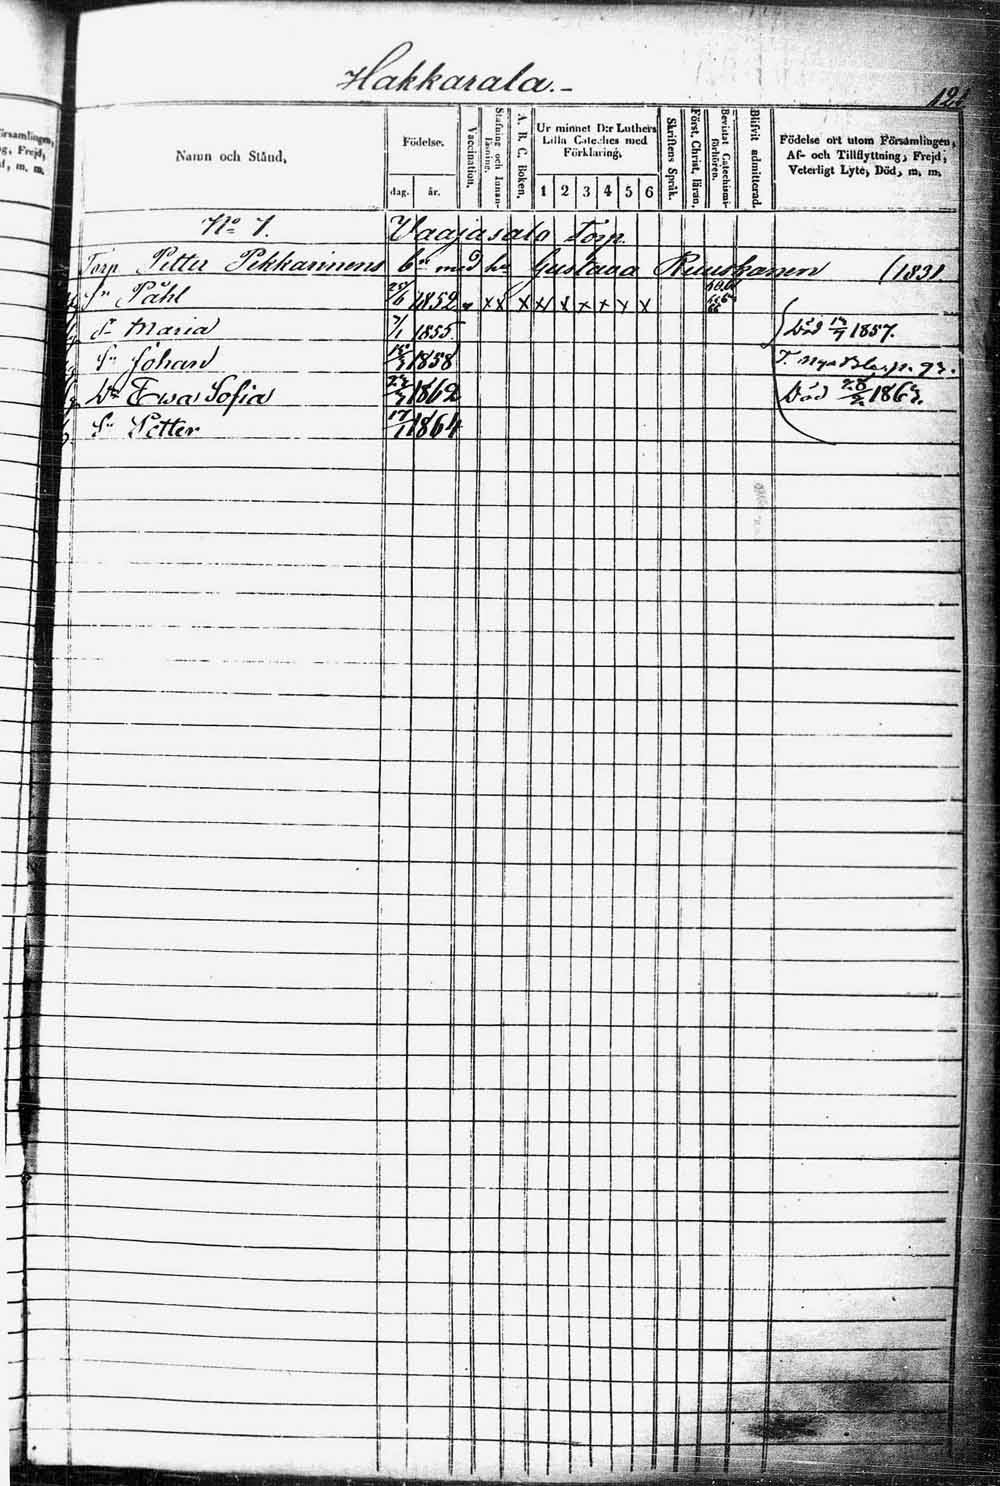 Hakkarala.
Namn och Stånd,
Födelse.
dag. år.
Vaccination.
Stafning och Innanläsning.
A. B. C. Boken,
Ur minnet D:r Luthers Lilla Cateches med Förklaring,
1 2 3 4 5 6
Skriftens Språk.
Först. Christ. läran,
Bevistat Catechismiförhören.
Blifvit admitterad.
Födelse ort utom Församlingen, Af- och Tillflyttning, Frejd, Veterligt Lyte, Död, m. m.
No 1. Vaajasalo Torp.
Torp Petter Pekkarinens bn med hu Gustava Ruuskanen (1831.
Sn Påhl 1852 x x x x x x x x x
dr Maria 7/1 1855. Död 1857.
Sn Johan 1858 T. Nya
Dr Ewa Sofia 1862 Död
Sn Petter 17/1 1864